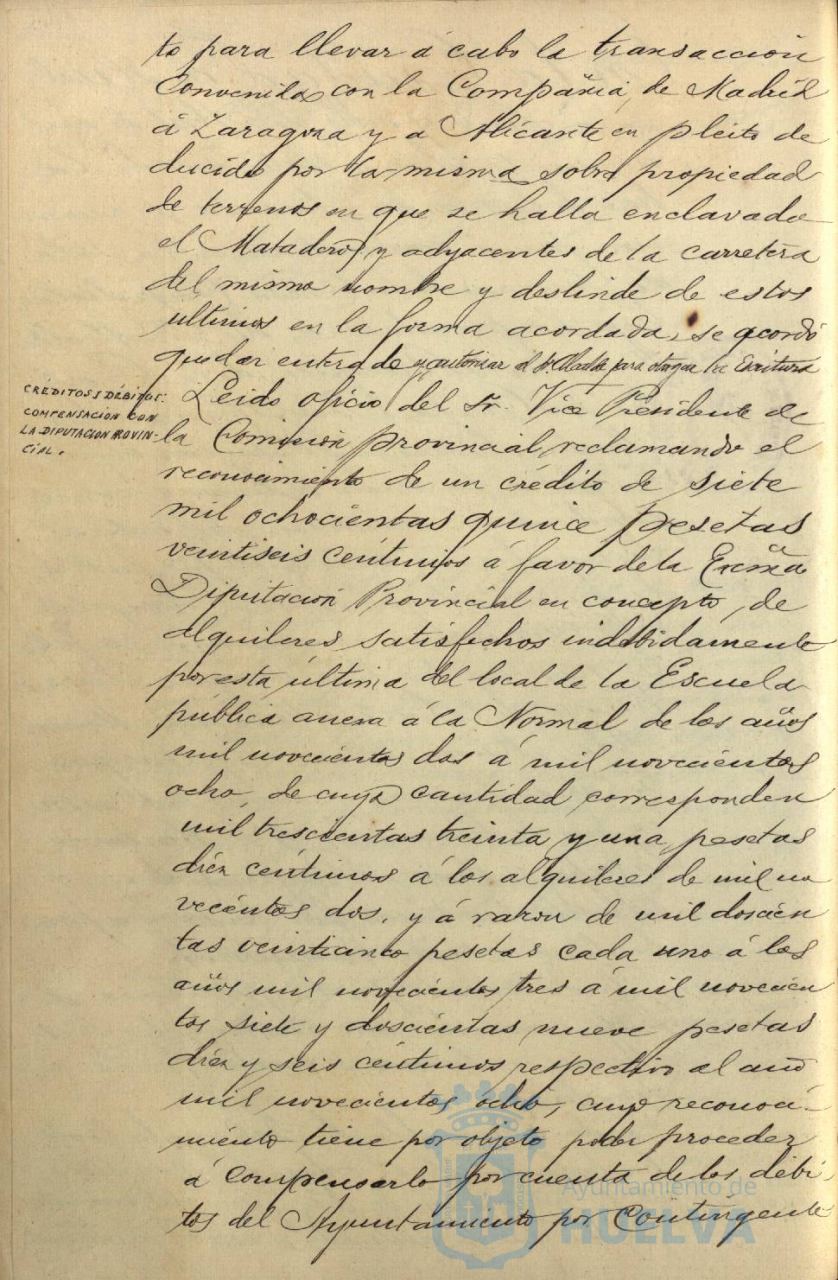 to para llevar á cabo la transacción
Convenida con la Compañia, de Madrid
á Zaragoza y a Alicante en pleito de
ducido por la misma sobre propiedad
de terrenos en que se halla enclavado
el Matadero y adyacentes de la carretera
del mismo nombre y deslinde de estos
ultimos en la forma acordada, se acordó
quedar enterado y autorizar al Sr Alcalde para otorgar la Escritura
CRÉDITOS Y DÉBITOS:
COMPENSACIÓN CON
LA DIPUTACION PROVIN-
CIAL.
Leido oficio del Sr. Vice Presidente de
la Comision provincial, reclamando el
reconocimiento de un crédito de siete
mil ochocientas quince pesetas
veintiseis céntimos á favor de la Excma
Diputación Provincial en concepto, de
alquileres satisfechos indebidamente
por esta última del local de la Escuela
pública anexa á la Normal de los años
mil novecientos dos á mil novecientos
ocho, de cuya cantidad corresponden
mil trescientas treinta y una pesetas
diez céntimos á los alquileres de mil no
vecientos dos, y á razon de mil doscien
tas veinticinco pesetas cada uno á los
años mil novecientos tres á mil novecien
tos siete y doscientas nueve pesetas
diez y seis céntimos respectivo al año
mil novecientos ocho, cuyo reconoci-
miento tiene por objeto poder proceder
á compensarlo por cuenta de los débi-
tos del Ayuntamiento por Contingente
Ayuntamiento de
HUELVA